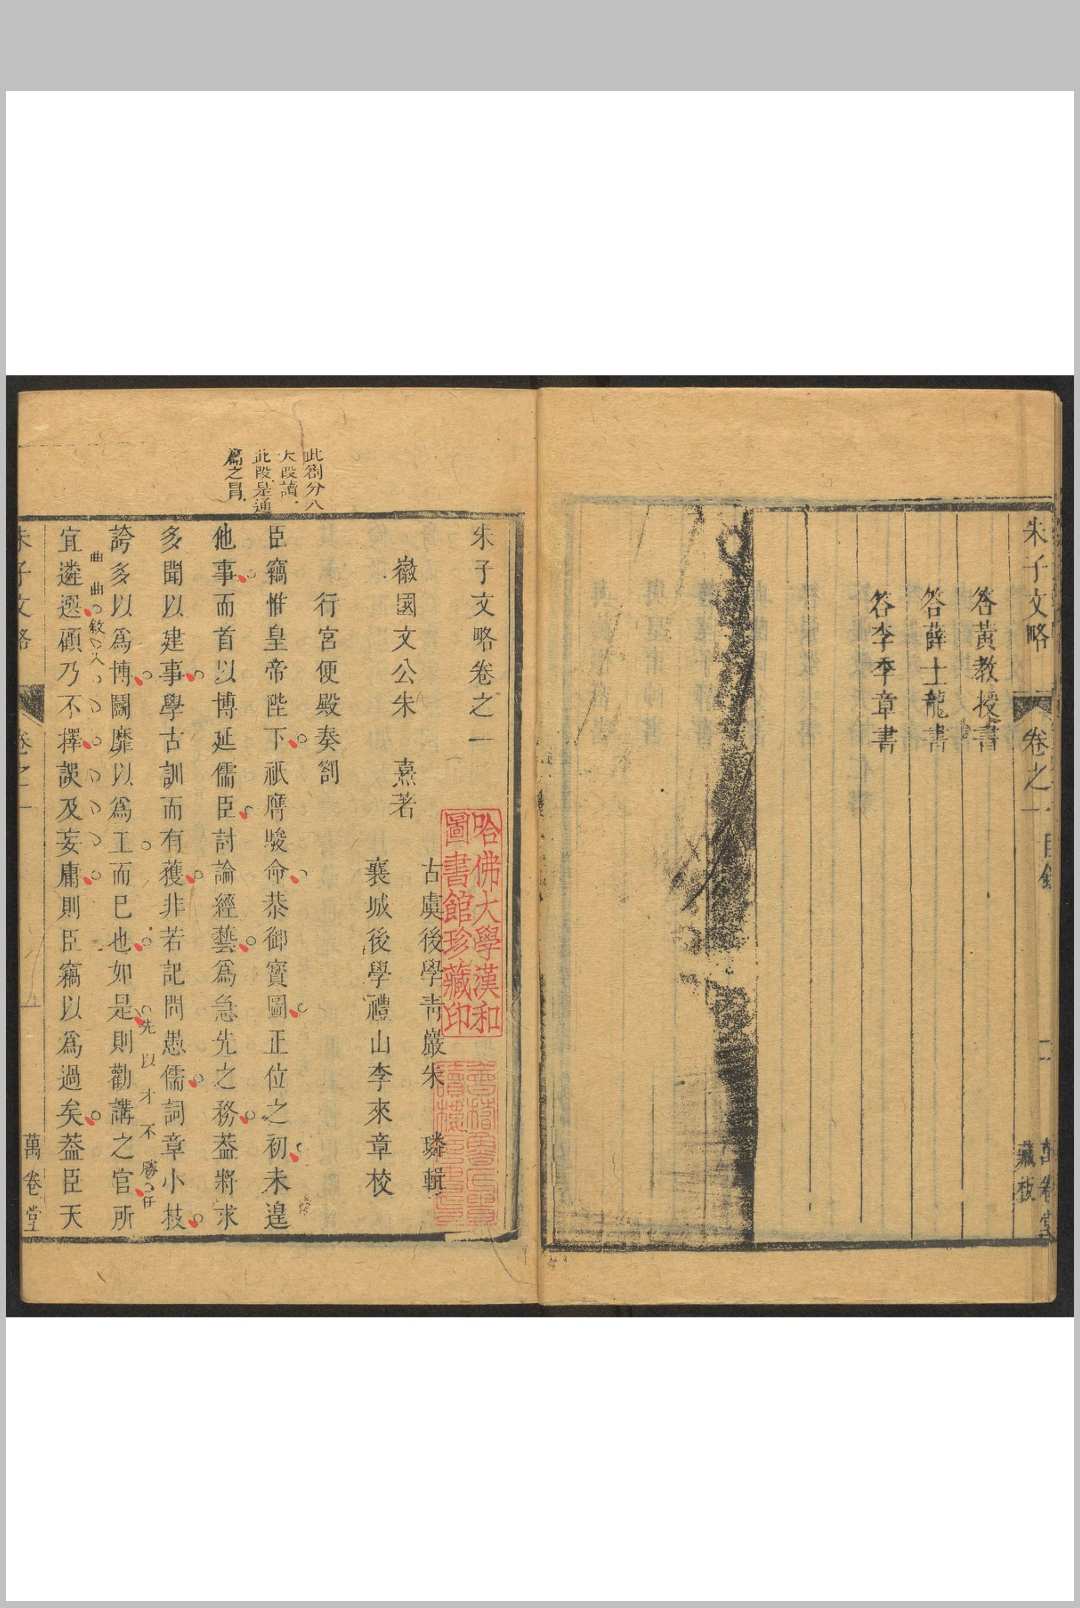 朱子文略
卷之一
目錄
二
萬卷堂
藏板
答黃教授書
答薛士龍書
答李季章書
此劄分八
大段讀
此段是通
篇之冒
朱子文略卷之一
徽國文公朱　熹著
古虞後學靑巖朱　璘輯
襄城後學禮山李來章校
行宮便殿奏劄
臣竊惟皇帝陛下祇膺駿命恭御寳圖正位之初未遑
他事而首以博延儒臣討論經藝爲急先之務葢將求
多聞以建事學古訓而有獲非若記問愚儒詞章小技
先以才不勝任
誇多以爲博鬭靡以爲工而已也如是則勸講之官所
曲曲敘入
宜遴選顧乃不擇誤及妄庸則臣竊以爲過矣葢臣天
朱子文略
卷之一
萬卷堂
哈佛大學漢和
圖書館珍藏印